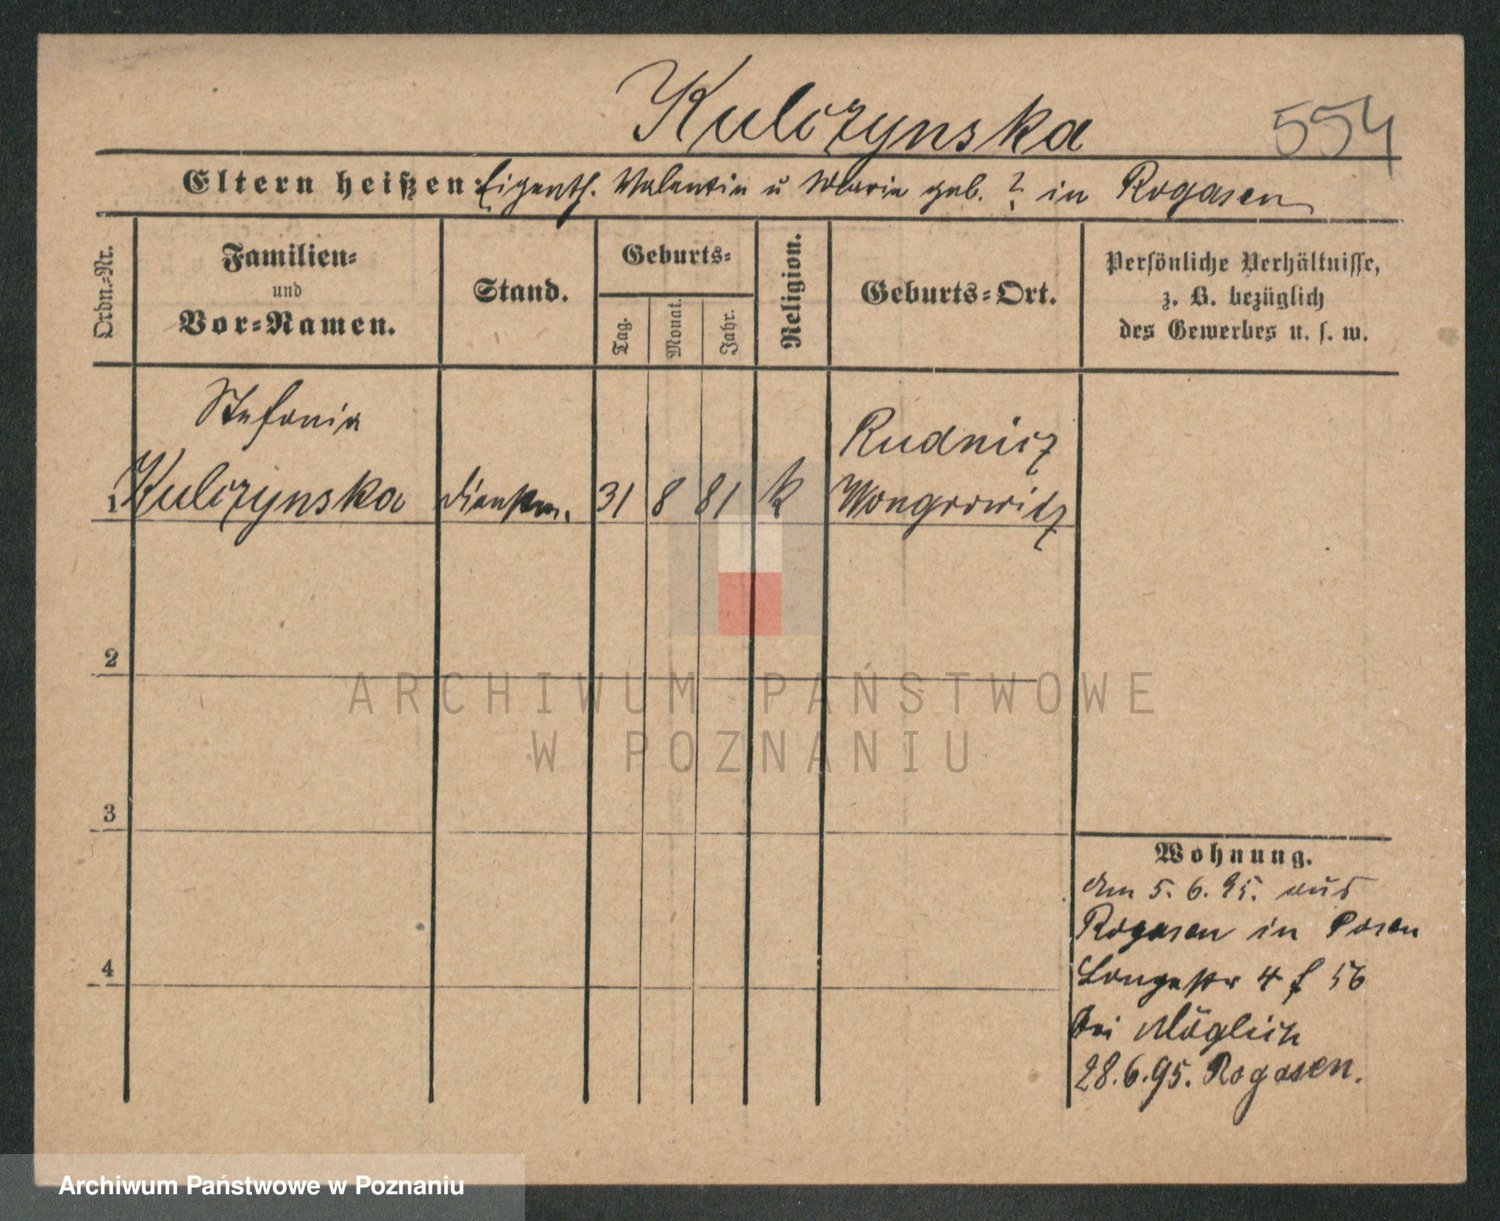 Kulczynska
554
Eltern heißen: Eigenth. Valentin u Maria geb. ? in Rogasen
Ordn.=Nr.
Familien=
und
Vor=Namen.
Stand.
Geburts=
Tag.
Monat.
Jahr.
Religion.
Geburts=Ort.
Persönliche Verhältnisse,
z. B. bezüglich
des Gewerbes u. s. w.
Stefania
Rudnicz
1 Kulczynska
Dienstm.
31
8
81
k
Wongrowitz
2
ARCHIWUM PAŃSTWOWE
W POZNANIU
3
Wohnung.
am 5. 6. 95. aus
Rogasen in Posen
4
Langestr 4 f 56
bei Möglich
28.6.95. Rogasen.
Archiwum Państwowe w Poznaniu